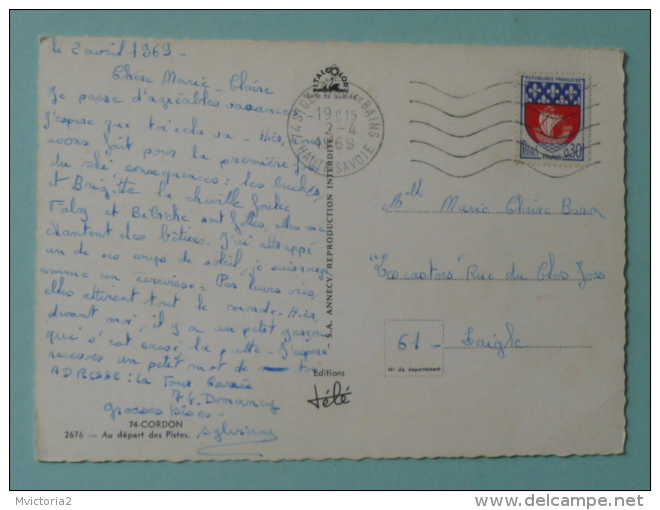 le 2 avril 1969 -
Chère Marie-Claire
Je passe d'agréables vacances
J'espère que toi cela va - Hier, nous
avons fait pour la première fois
du ski, conséquences : les bûches,
et Brigitte la cheville foulée
Faby et Bébiche sont folles, elles me
chantent des bêtises. J'ai attrapé
un de ces coups de soleil, je suis rouge
comme un écrevisse = Par leurs cris,
elles attirent tout le monde - Hier,
devant moi, il y a un petit garçon
qui s'est cassé la patte - J'espère
recevoir un petit mot de toi
ADRESSE : La Tour Carrée
74. Domancy
grosses bises -
sylviane
74-CORDON
2676 — Au départ des Pistes.
S.A. ANNECY REPRODUCTION INTERDITE
Editions
télé
74 ST GE BAINS
19H15
2-4
1969
HAUTE SAVOIE
REPUBLIQUE FRANÇAISE
0,30
PARIS
Mlle Marie Claire Baron
"Les castors" Rue du Clos Joss
61 - Laigle
N° de département
Mvictoria2
http://www.delcampe.net